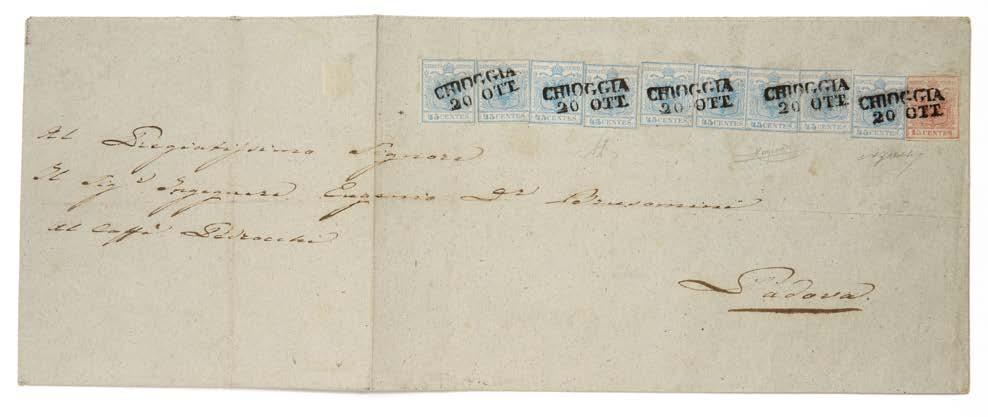 CHIOGGIA CHIOGGIA CHIOGGIA CHIOGGIA CHIOGGIA
20 OTT. 20 OTT. 20 OTT. 20 OTT. 20 OTT.
45 CENTES 45 CENTES 45 CENTES 45 CENTES 45 CENTES 45 CENTES 45 CENTES 45 CENTES 45 CENTES 15 CENTES
Al Pregiatissimo Signore
Il Sigr Ingegnere Eugenio Dr Brusomini
al Caffè Pedrocchi
Padova.